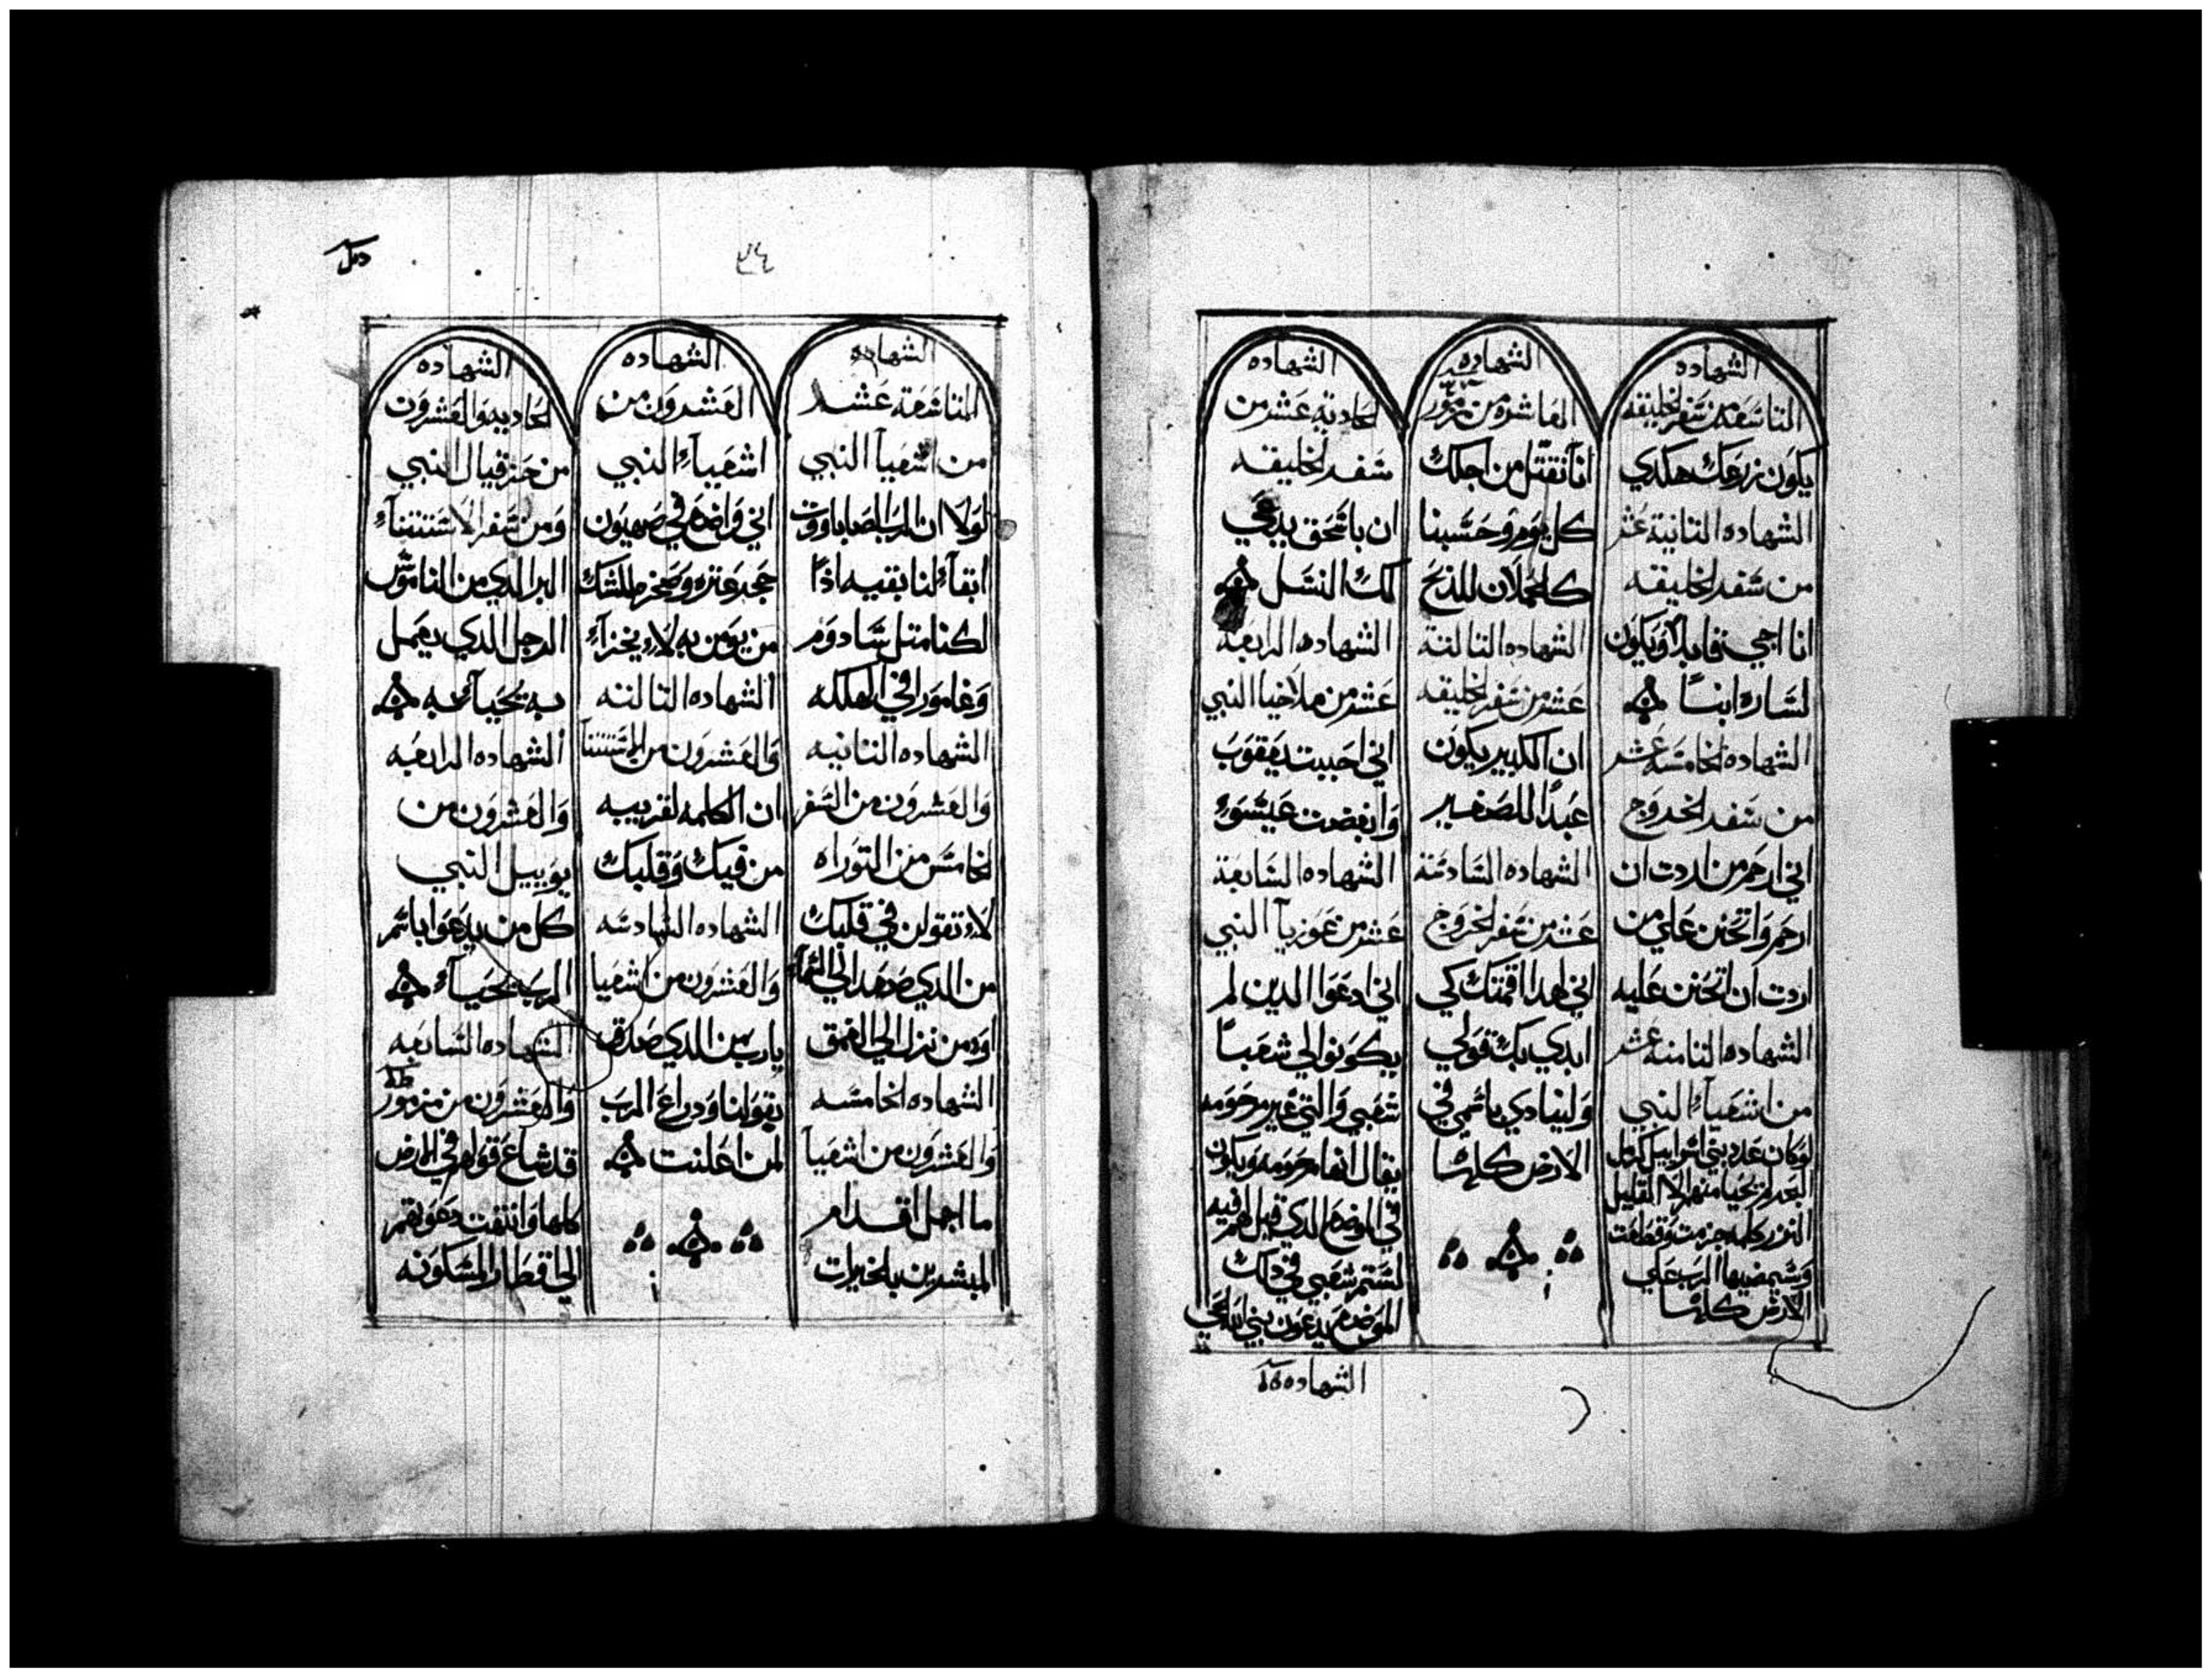 الشهاده
التاسعه من سفر الخليقه
يكون زرعك هكدي
الشهاده الثانية عشر
من سفر الخليقه
انا اجي فابدا ويكون
لساره ابنا
الشهاده الخامسه عشر
من سفر الخروج
اني ارحم من اردت ان
ارحم واتحنن علي من
اردت ان اتحنن عليه
الشهاده الثامنه عشر
من اشعياء النبي
لو كان عدد بني اسراييل كرمل
البحر لم يحيا منهم الا القليل
النزر كلمه جزمت وقطعت
وسيمضيها الرب علي
الارض كلها
الشهاده
العاشره من مزمور
اننا نقتل من اجلك
كل يوم وحسبنا
كالحملان للدبح
الشهاده الثالثة
عشر من سفر الخليقه
ان الكبير يكون
عبدا للصغير
الشهاده السادسة
عشر من سفر الخروج
اني لهدا اقمتك كي
ابدي بك قولي
ولينادي باسمي في
الارض كلها
الشهاده
الحادية عشر من
سفر الخليقه
ان باسحق يدعي
لك النسل
الشهاده الرابعة
عشر من ملاخيا النبي
اني احببت يعقوب
وابغضت عيسوء
الشهاده السابعة
عشر من عوزيا النبي
اني ادعوا الدين لم
يكونوا لي شعبا
شعبي والتي غير مرحومه
يقال انها مرحومه ويكون
في الموضع الدي قيل لهم فيه
لستم شعبي في دلك
الموضع يدعون بني الله الحي
الشهاده
٣٤
الشهاده
التاسعة عشر
من اشعيا النبي
لولا ان الرب الصاباووت
ابقاء لنا بقيه اذا
لكنا مثل سادوم
وغامورا في الهلكه
الشهاده الثانيه
والعشرون من السفر
الخامس من التوراه
لاء تقولن في قلبك
من الدي صعد الي السماء
او من نزل الي العمق
الشهاده الخامسه
والعشرون من اشعيا
ما اجمل اقدام
المبشرين بالخيرات
الشهاده
العشرون من
اشعياء النبي
اني واضع في صهيون
حجر عثره وصخرة للشك
من يومن به لاء يخزاء
الشهاده الثالثه
والعشرون من الاستثنا
ان الكلمه لقريبه
من فيك وقلبك
الشهاده السادسه
والعشرون من اشعيا
يارب من الدي صدق
بقولنا ودراع الرب
لمن اعلنت
الشهاده
الحاديه والعشرون
من حزقيال النبي
ومن سفر الاستثناء
البر الدي من الناموس
الرجل الدي يعمل
به يحياء به
الشهاده الرابعه
والعشرون من
يوييل النبي
كل من يدعوا باسم
الرب يحياء
الشهاده السابعه
والعشرون من مزمور
قد شاع قولهم في الارض
كلها وانتهت دعوتهم
الي اقطار المسكونه